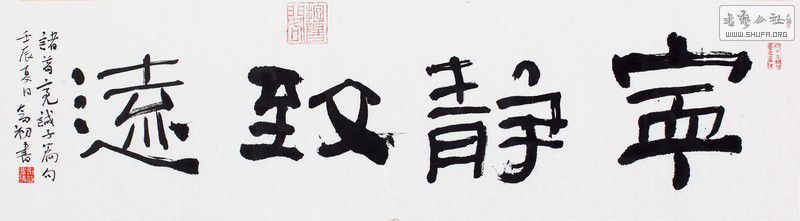 寧静致遠
諸葛亮誡子篇句
壬辰夏日
書
書藝公社
WWW.SHUFA.ORG